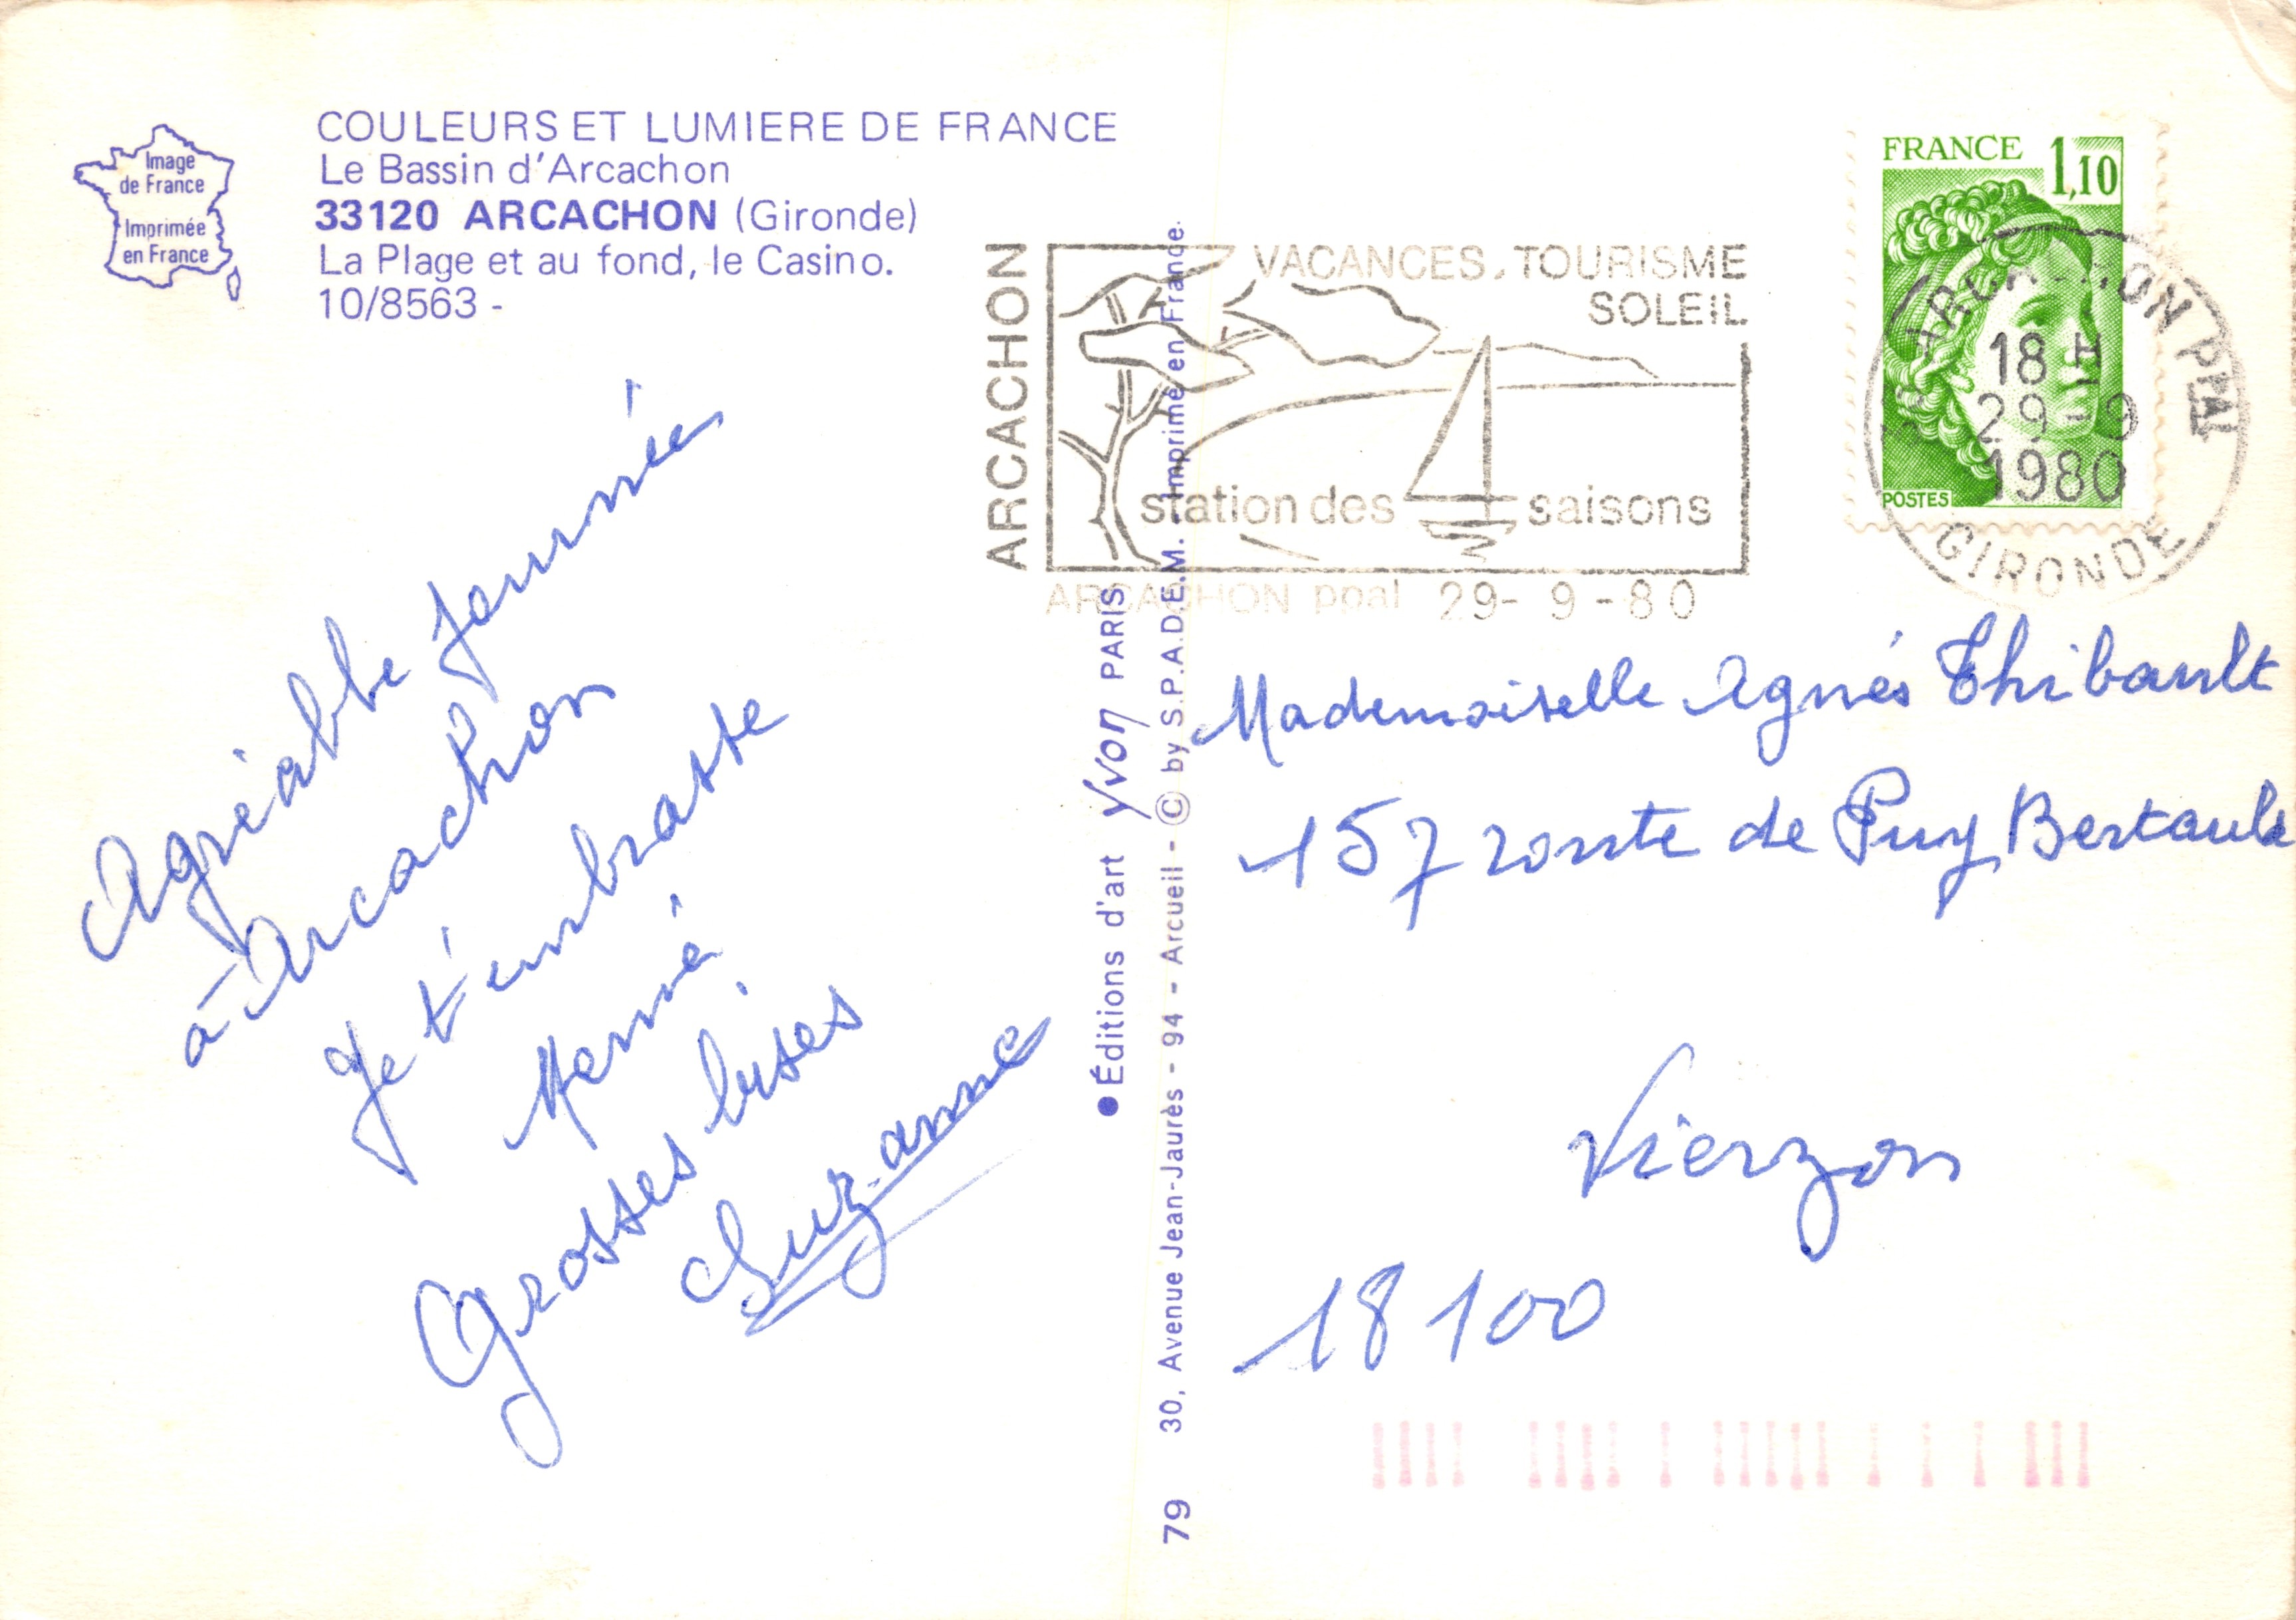 Image
de France
Imprimée
en France
COULEURS ET LUMIERE DE FRANCE
Le Bassin d'Arcachon
33120 ARCACHON (Gironde)
La Plage et au fond, le Casino.
10/8563 -
Agréable journée
à Arcachon
Je t'embrasse
Mémé
Grosses bises
Suzanne
● Éditions d'art Yvon PARIS
79 30, Avenue Jean-Jaurès - 94 - Arcueil - © by S.P.A.D.E.M. - Imprimé en France.
ARCACHON
VACANCES. TOURISME
SOLEIL
station des saisons
ARCACHON ppal 29- 9 -80
FRANCE 1,10
POSTES
ARCACHON PPAL
18 H
29-9
1980
GIRONDE
Mademoiselle Agnés Thibault
157 route de Puy Bertault
Vierzon
18100